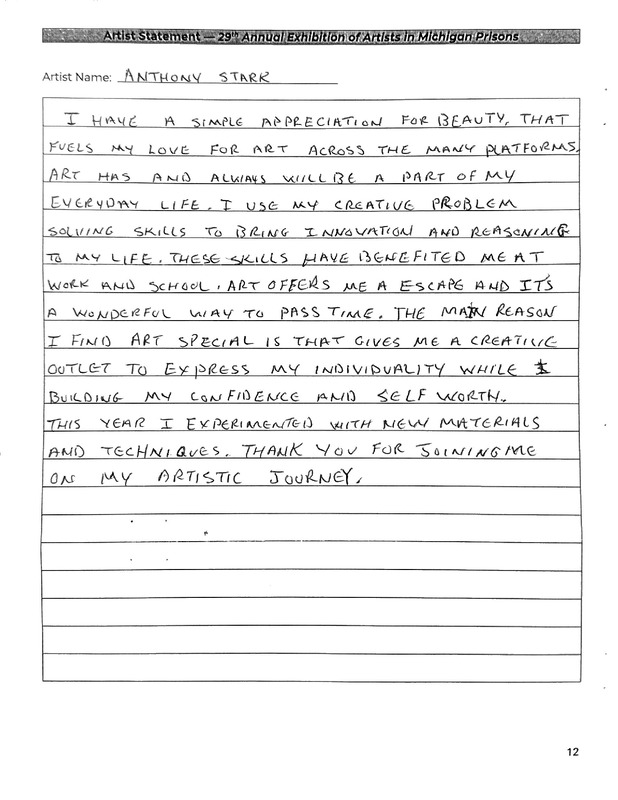 Artist Statement — 29th Annual Exhibition of Artists in Michigan Prisons
Artist Name: ANTHONY STARK
I HAVE A SIMPLE APPRECIATION FOR BEAUTY, THAT
FUELS MY LOVE FOR ART ACROSS THE MANY PLATFORMS.
ART HAS AND ALWAYS WILL BE A PART OF MY
EVERYDAY LIFE. I USE MY CREATIVE PROBLEM
SOLVING SKILLS TO BRING INNOVATION AND REASONING
TO MY LIFE. THESE SKILLS HAVE BENEFITED ME AT
WORK AND SCHOOL. ART OFFERS ME A ESCAPE AND IT'S
A WONDERFUL WAY TO PASS TIME. THE MAIN REASON
I FIND ART SPECIAL IS THAT GIVES ME A CREATIVE
OUTLET TO EXPRESS MY INDIVIDUALITY WHILE
BUILDING MY CONFIDENCE AND SELF WORTH.
THIS YEAR I EXPERIMENTED WITH NEW MATERIALS
AND TECHNIQUES. THANK YOU FOR JOINING ME
ON MY ARTISTIC JOURNEY.
12